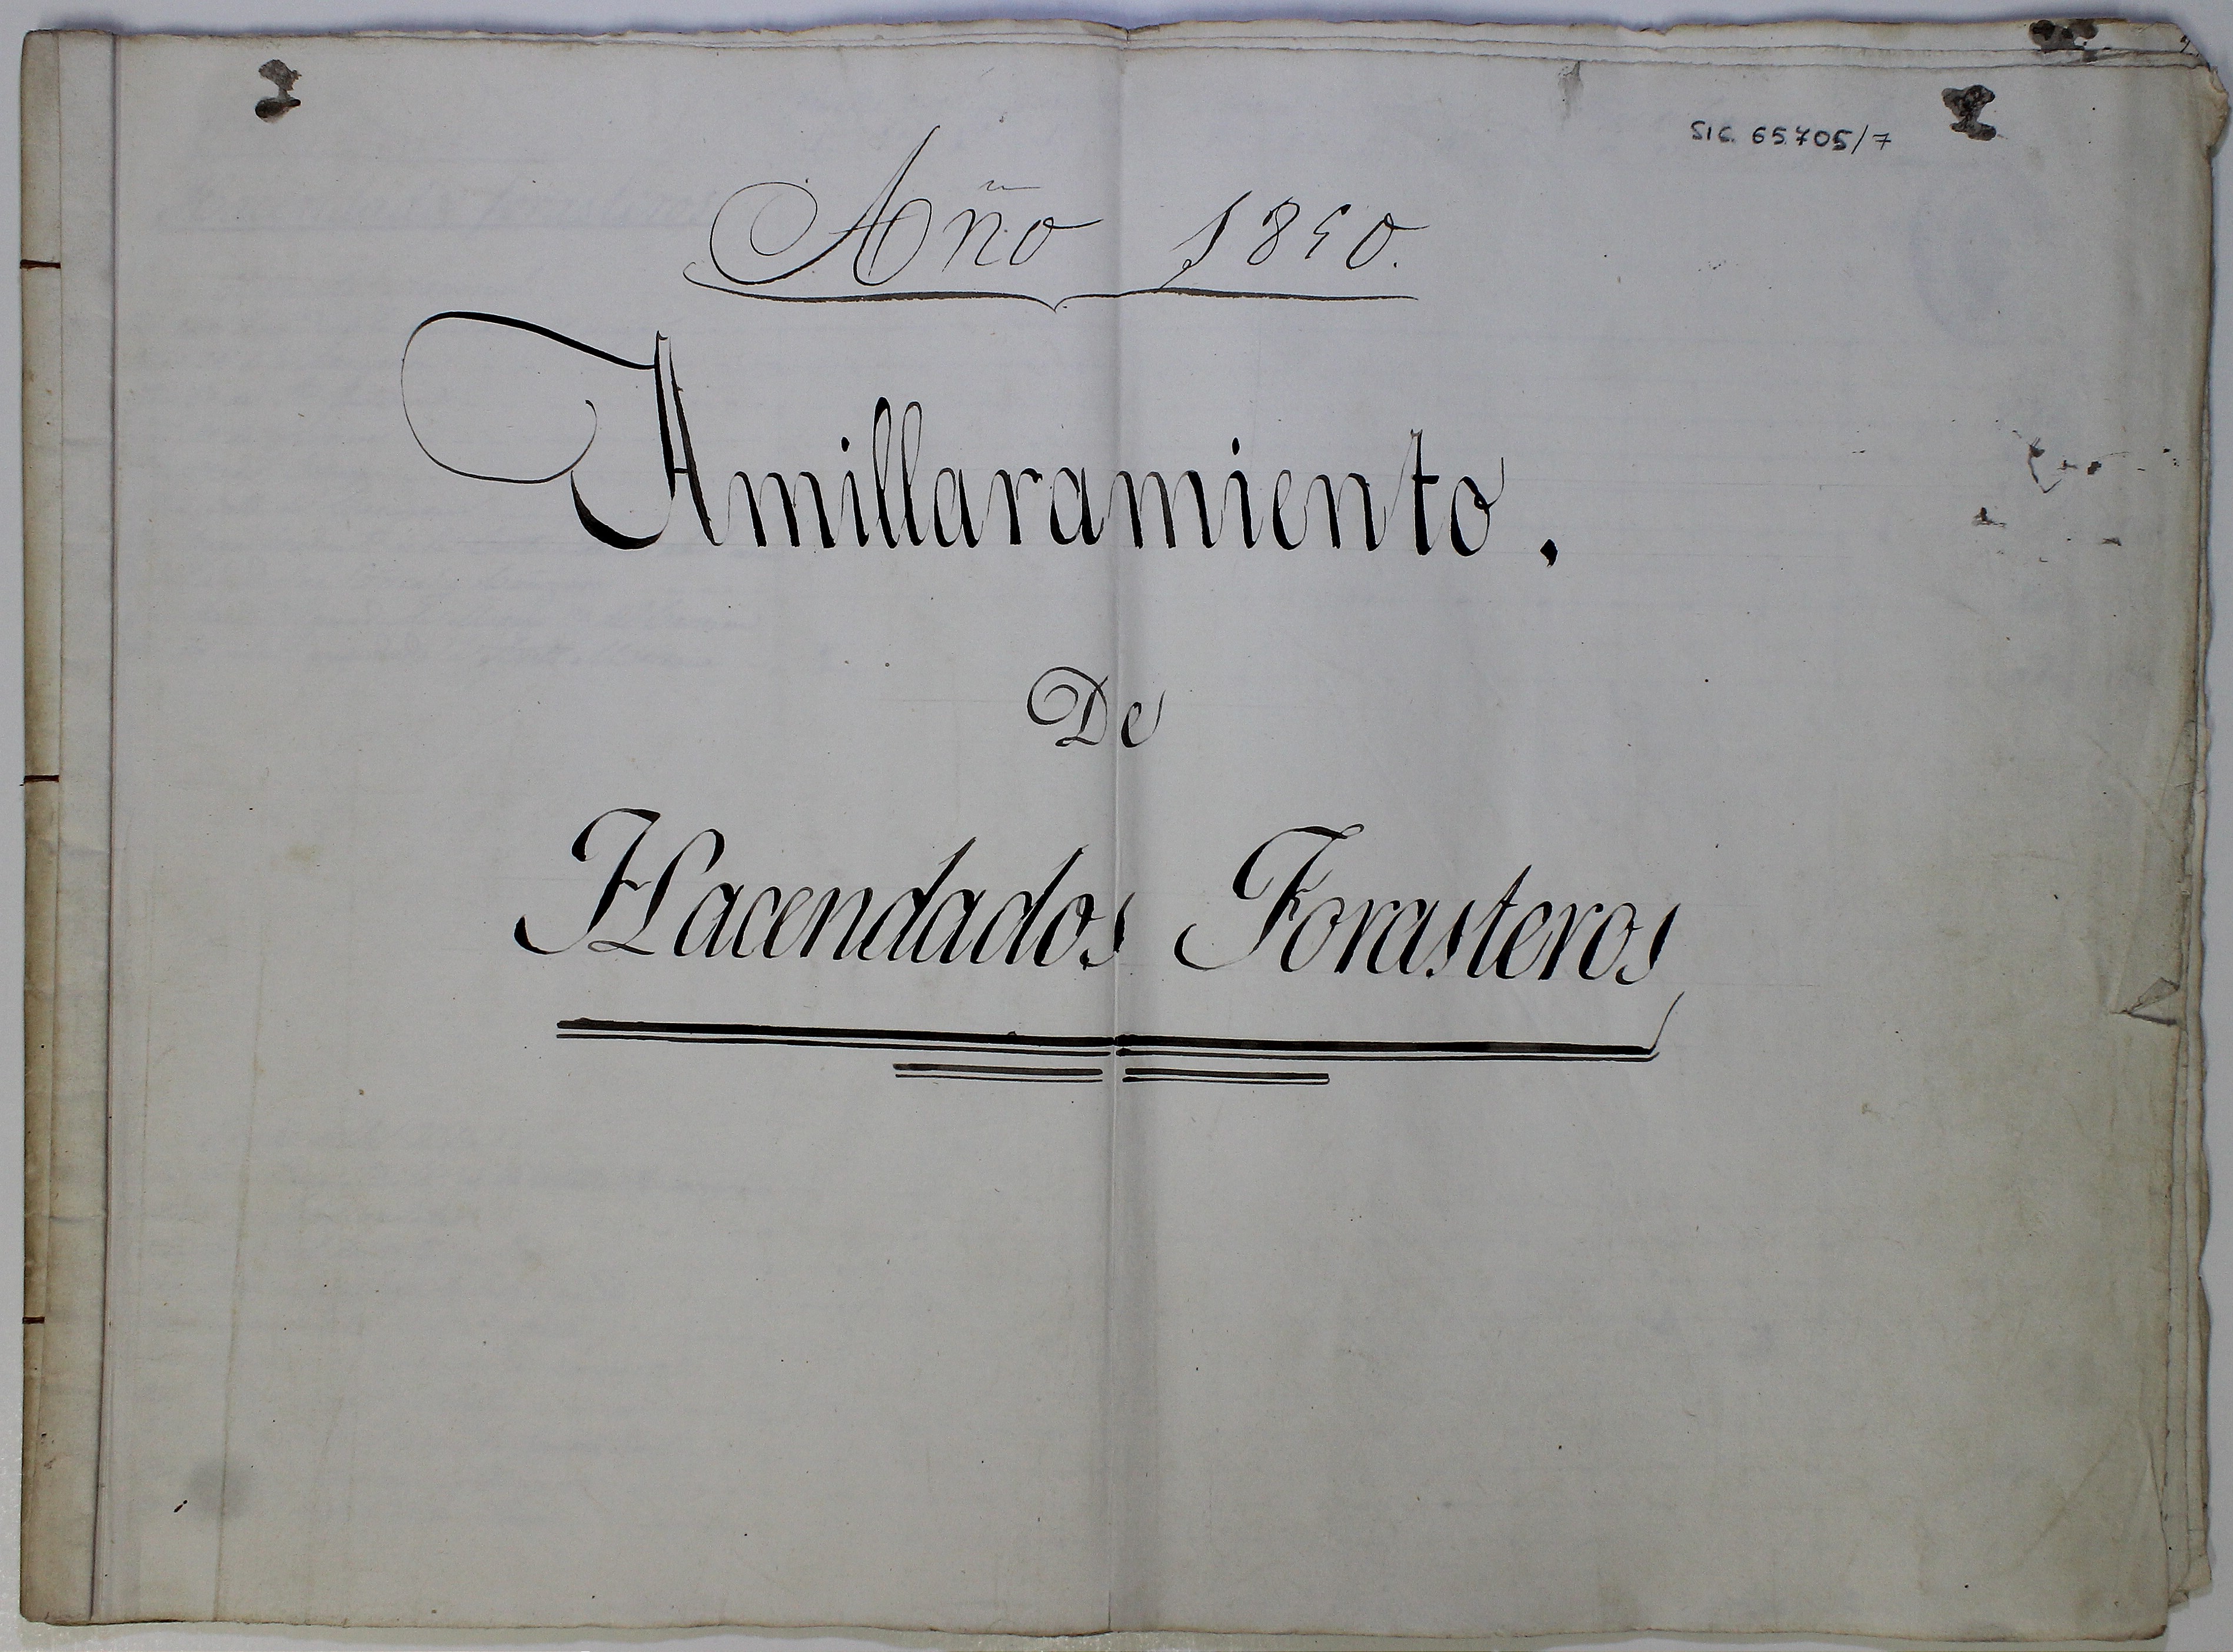 SIG. 65705/7
Año 1850.
Amillaramiento.
De
Hacendados Forasteros